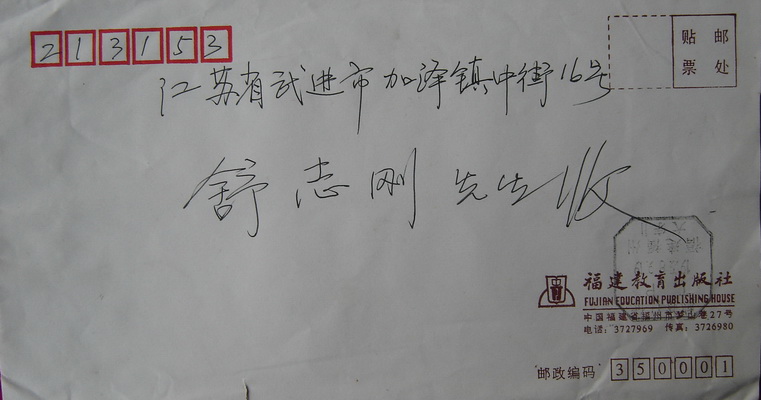 213153
贴 邮
票 处
江苏省武进市加泽镇中街16号
舒志刚 先生 收
福建教育出版社
FUJIAN EDUCATION PUBLISHING HOUSE
中国福建省福州市梦山巷27号
电话：3727969 传真：3726980
邮政编码 350001